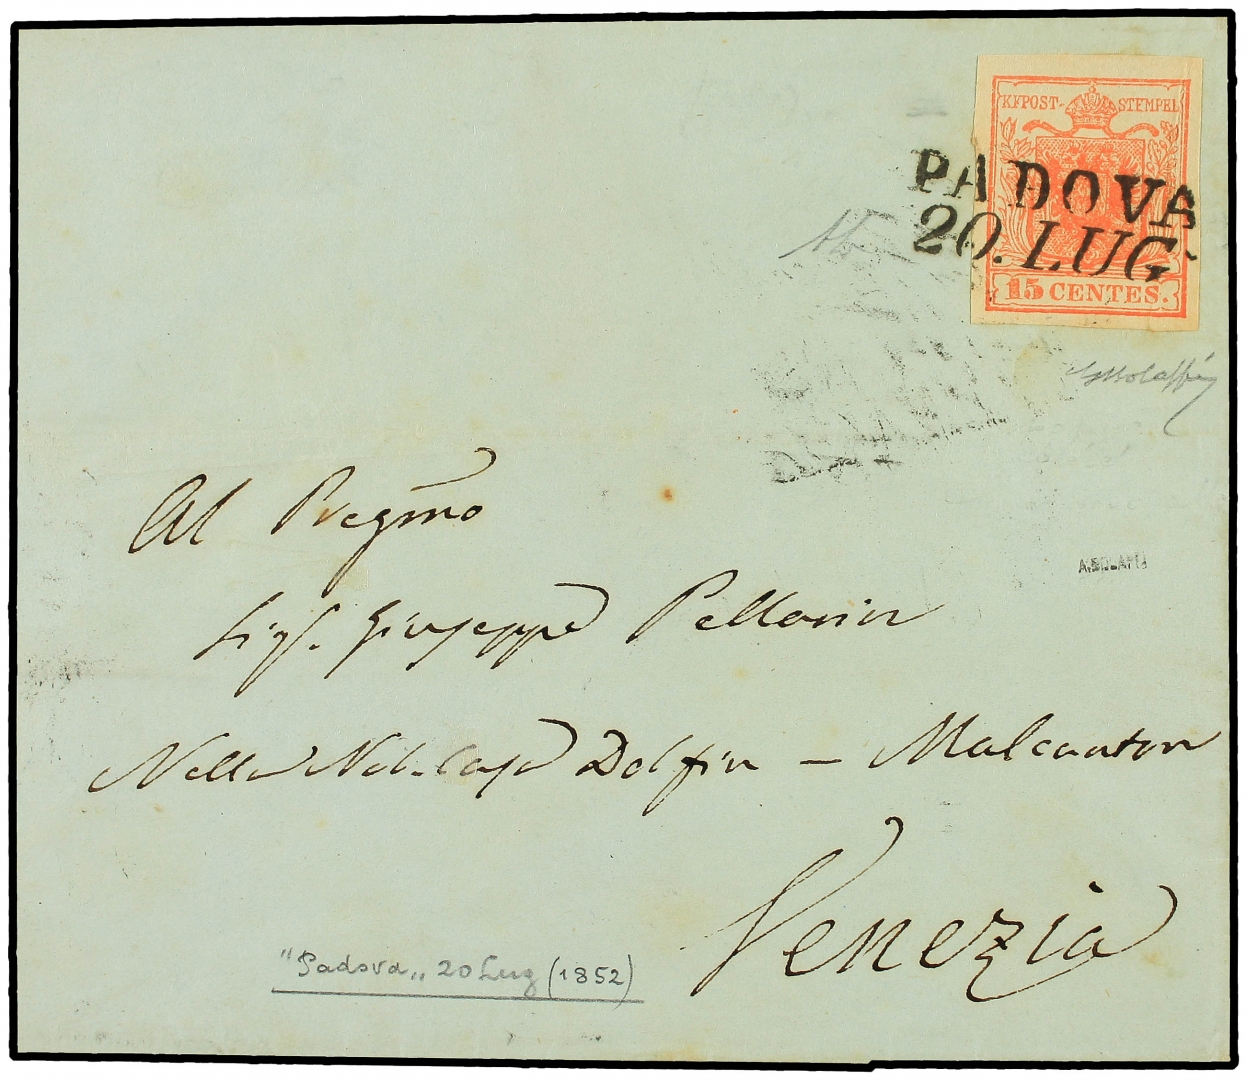 KKPOST-STEMPEL
PADOVA
20. LUG.
15 CENTES.
Al Pregmo
Sigr. Giuseppe Pellarin
Nella Nob. Casa Dolfin – Malcanton
Venezia
"Padova" 20 Lug (1852)